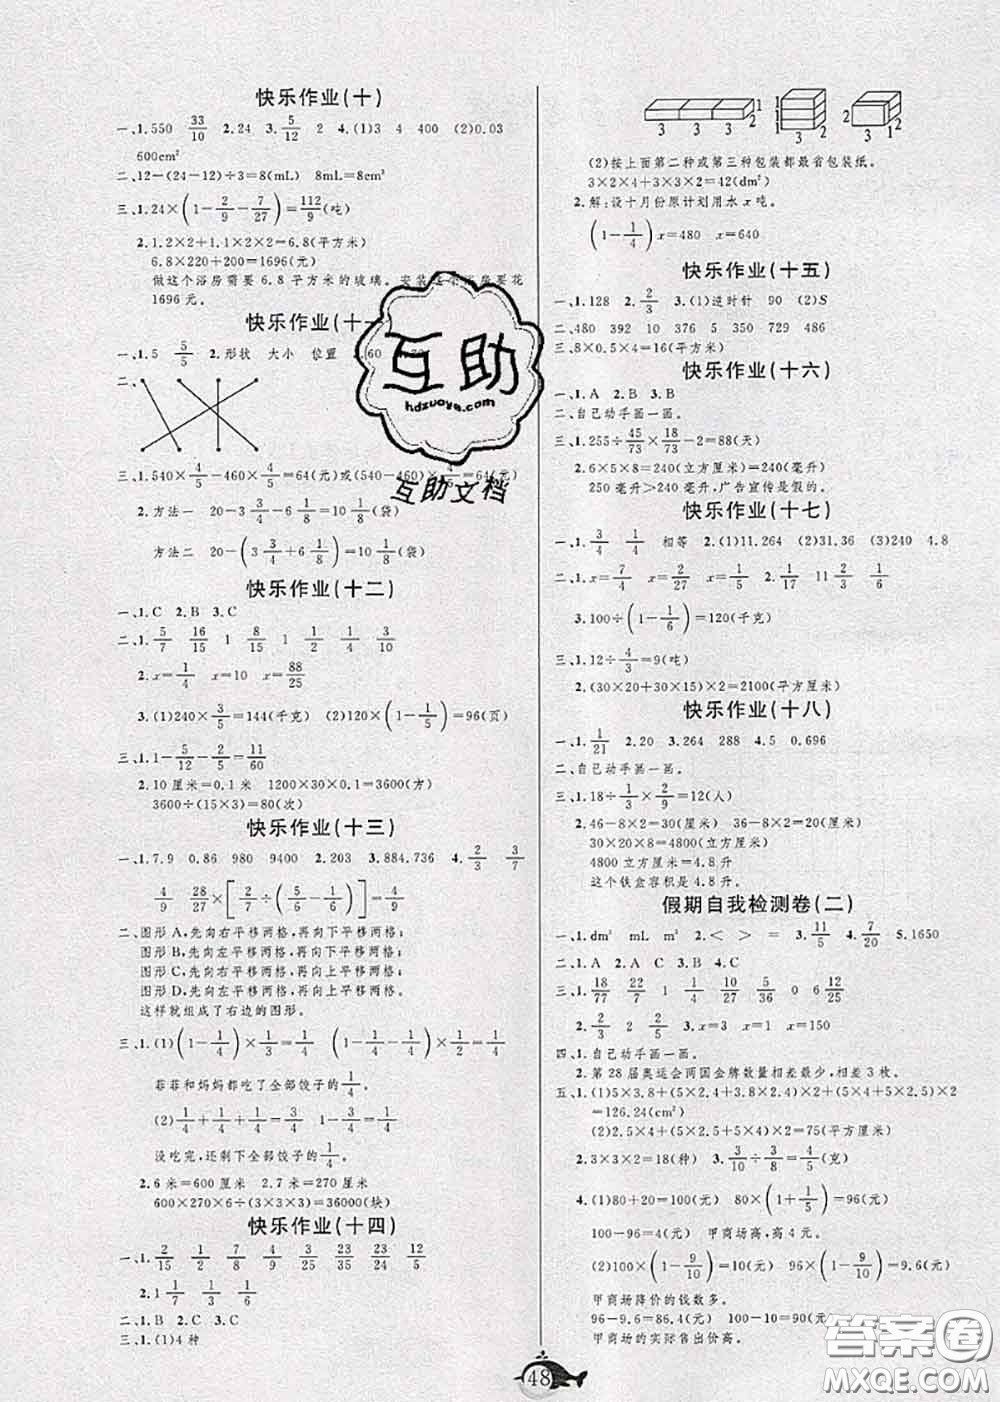 快乐作业(十)
一、1.550 33/10 2.24 3.5/12 2 4.(1)3 4 400 (2)0.03
600cm²
二、12-(24-12)÷3=8(mL) 8mL=8cm³
三、1.24×(1-2/9-7/27)=112/9(吨)
2.1.2×2+1.1×2×2=6.8(平方米)
6.8×220+200=1696(元)
做这个浴房需要6.8平方米的玻璃。安装 房要花
1696元。
快乐作业(十一
一、1.5 5/5 2.形状 大小 位置 60
二、
三、1.540×4/5-460×4/5=64(元)或(540-460)×4/5=64(元)
2.方法一 20-3 3/4-6 1/8=10 1/8(袋)
方法二 20-(3 3/4+6 1/8)=10 1/8(袋)
快乐作业(十二)
一、1.C 2.B 3.C
二、1.5/7 16/15 1 8/15 1/4 1/4 3/10
2.x=1/4 x=10 x=88/25
3.(1)240×3/5=144(千克) (2)120×(1-1/5)=96(页)
三、1.1-5/12-2/5=11/60
2.10厘米=0.1米 1200×30×0.1=3600(方)
3600÷(15×3)=80(次)
快乐作业(十三)
一、1.7.9 0.86 980 9400 2.203 3.884.736 4.2/3 3/7
4/9 28/27×[2/7÷(5/6-1/6)]=4/9
二、图形A,先向右平移两格,再向下平移两格;
图形B,先向左平移两格,再向下平移两格;
图形C,先向右平移两格,再向上平移两格;
图形D,先向左平移两格,再向上平移两格。
这样就组成了右边的图形。
三、1.(1)(1-1/4)×1/3=1/4 (1-1/4-1/4)×1/2=1/4
菲菲和妈妈都吃了全部饺子的1/4。
(2)1/4+1/4+1/4=3/4 1-3/4=1/4
没吃完,还剩下全部饺子的1/4。
2.6米=600厘米 2.7米=270厘米
600×270×6÷(3×3×3)=36000(块)
快乐作业(十四)
一、1.2/15 1/2 7/8 4/9 11/24 23/24 6/5
2.1 1/7 1/3 1/6 3/49
二、1.B 2.C 3.C
三、1.(1)4种
3 3 3 2 1 3 2 2 3 1 2
(2)按上面第二种或第三种包装都最省包装纸。
3×2×4+3×3×2=42(dm²)
2.解:设十月份原计划用水x吨。
(1-1/4)x=480 x=640
快乐作业(十五)
一、1.128 2.2/3 3.(1)逆时针 90 (2)S
二、480 392 10 5 375 6 350 729 486
三、8×0.5×4=16(平方米)
快乐作业(十六)
一、1.A 2.B 3.B
二、自己动手画一画。
三、1.255÷45/73×18/73-2=88(天)
2.6×5×8=240(立方厘米)=240(毫升)
250毫升>240毫升,广告宣传是假的。
快乐作业(十七)
一、1.3/4 1/4 相等 2.(1)11.264 (2)31.36 (3)240 4.8
二、1.x=7/4 x=2/27 x=2/5 2.1/17 11 2/3 1/6
3.100÷(1-1/6)=120(千克)
三、1.12÷4/3=9(吨)
2.(30×20+30×15)×2=2100(平方厘米)
快乐作业(十八)
一、1.1/21 2.20 3.264 288 4.5 0.696
二、自己动手画一画。
三、1.18÷1/3×2/9=12(人)
2.46-8×2=30(厘米) 36-8×2=20(厘米)
30×20×8=4800(立方厘米)
4800立方厘米=4.8升
这个铁盒容积是4.8升。
假期自我检测卷(二)
一、1.dm³ mL m³ 2.< > = 3.11/5 4.7/20 5.1650
二、1.A 2.A C 3.B 4.C
三、1.18/77 22/7 1 1/10 5/36 0 6 12/25
2.2/3 2 2/5 3.x=3 x=1 x=150
四、1.自己动手画一画。
2.第28届奥运会两国金牌数量相差最少,相差3枚。
五、1.(1)5×3.8+(5×2.4+3.8×2.4)×2+(5×4+5×2.5)×2
=126.24(cm²)
(2)2.5×4+(5×2.5+5×4)×2=75(平方厘米)
2.3×3×2=18(种) 3.3/10÷3/4=2/5
4.(1)80+20=100(元) 80×(1+1/5)=96(元)
100-96=4(元) 甲商场高,高4元。
(2)100×(1-9/10)=10(元) 96×(1-9/10)=9.6(元)
甲商场降价的钱数多。
96-9.6=86.4(元) 100-10=90(元)
甲商场的实际售出价高。
互助
hdzuoye.com
互助文档
48
答案圈
MXQE.COM